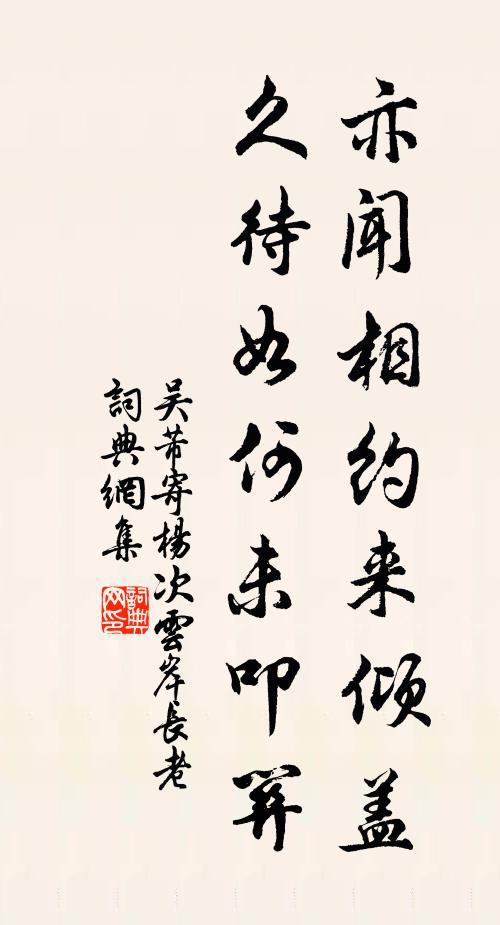 亦闻相约来倾盖
久待如何未叩關
吴芾寄楊次雲岸長老
詞典網集
詞典网印